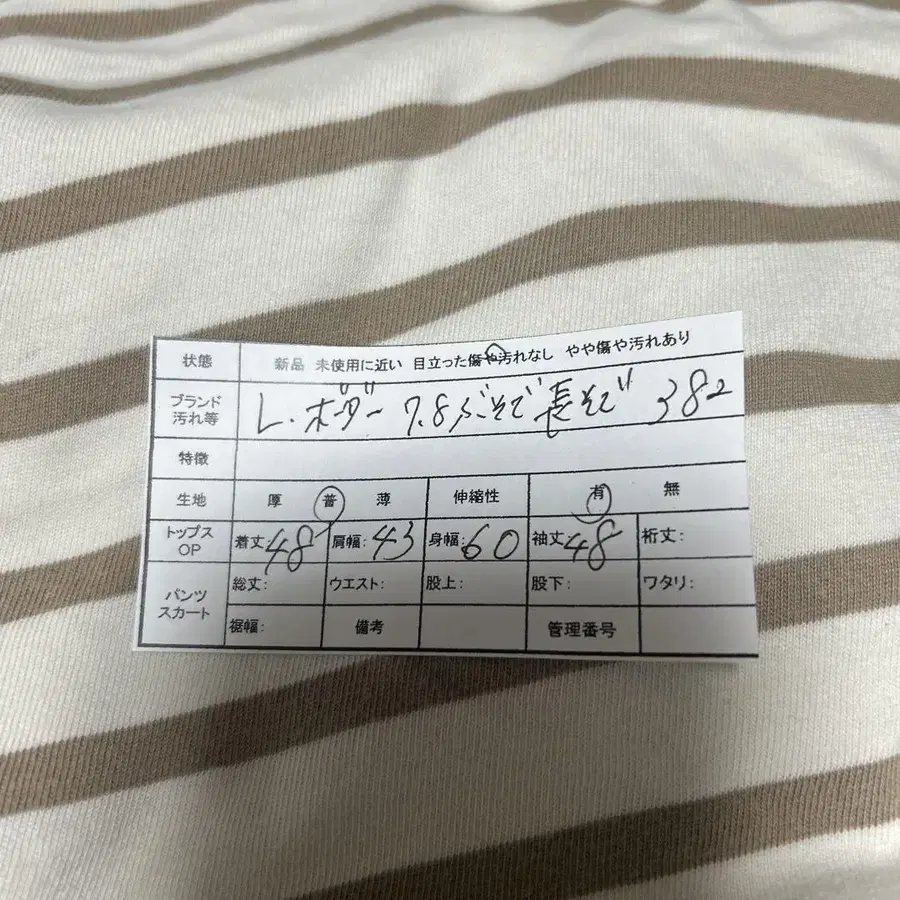 状態 新品 未使用に近い 目立った傷や汚れなし やや傷や汚れあり
ブランド 汚れ等 L.ボーダー 7.8ぶそで 長そで 382
特徴
生地 厚 普 薄 伸縮性 有 無
トップス OP 着丈48 肩幅:43 身幅:60 袖丈48 裄丈:
パンツ スカート 総丈: ウエスト: 股上: 股下: ワタリ:
裾幅: 備考 管理番号